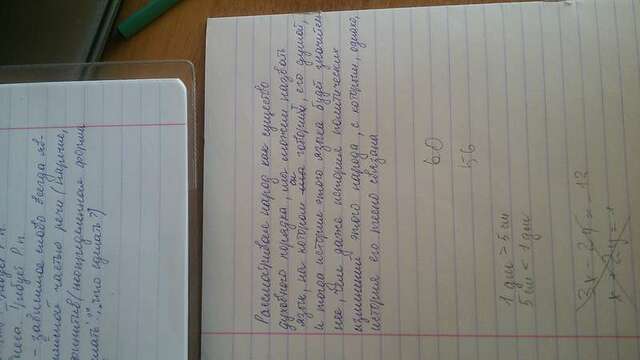 требует Р.п.
требует Р.п.
- зависимое слово всегда яв-
частью речи (наречие,
инфинитив (неопределенная форма
что сделать?)
Рассматривая народ как существо
духовного порядка, мы можем назвать
язык, на котором он говорит, его душой,
и тогда история этого языка будет значитель
нее, чем даже история политических
изменений этого народа, с которыми, однако,
история его тесно связана
60
56
1 дм > 5 см
5 см < 1 дм
3x - 2y = -12
x + 2y =